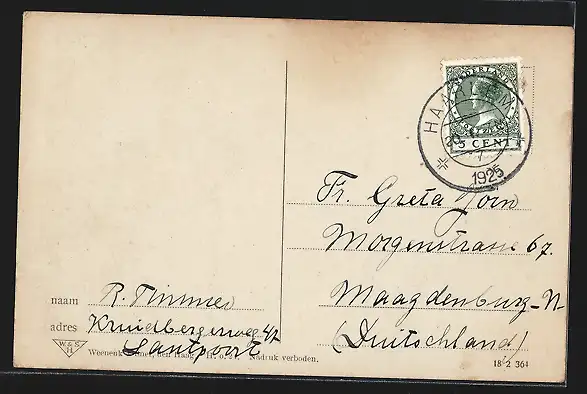 NEDERLAND
HAARLEM
5 CENT
1925
Fr. Greta Jorn
Morgenstrasse 67.
Maagdenburg-N
(Duitschland)
naam R. Timmer
adres Kruidbergerweg
Santpoort
W. & S.
H.
den Haag
Nadruk verboden.
18 2 364